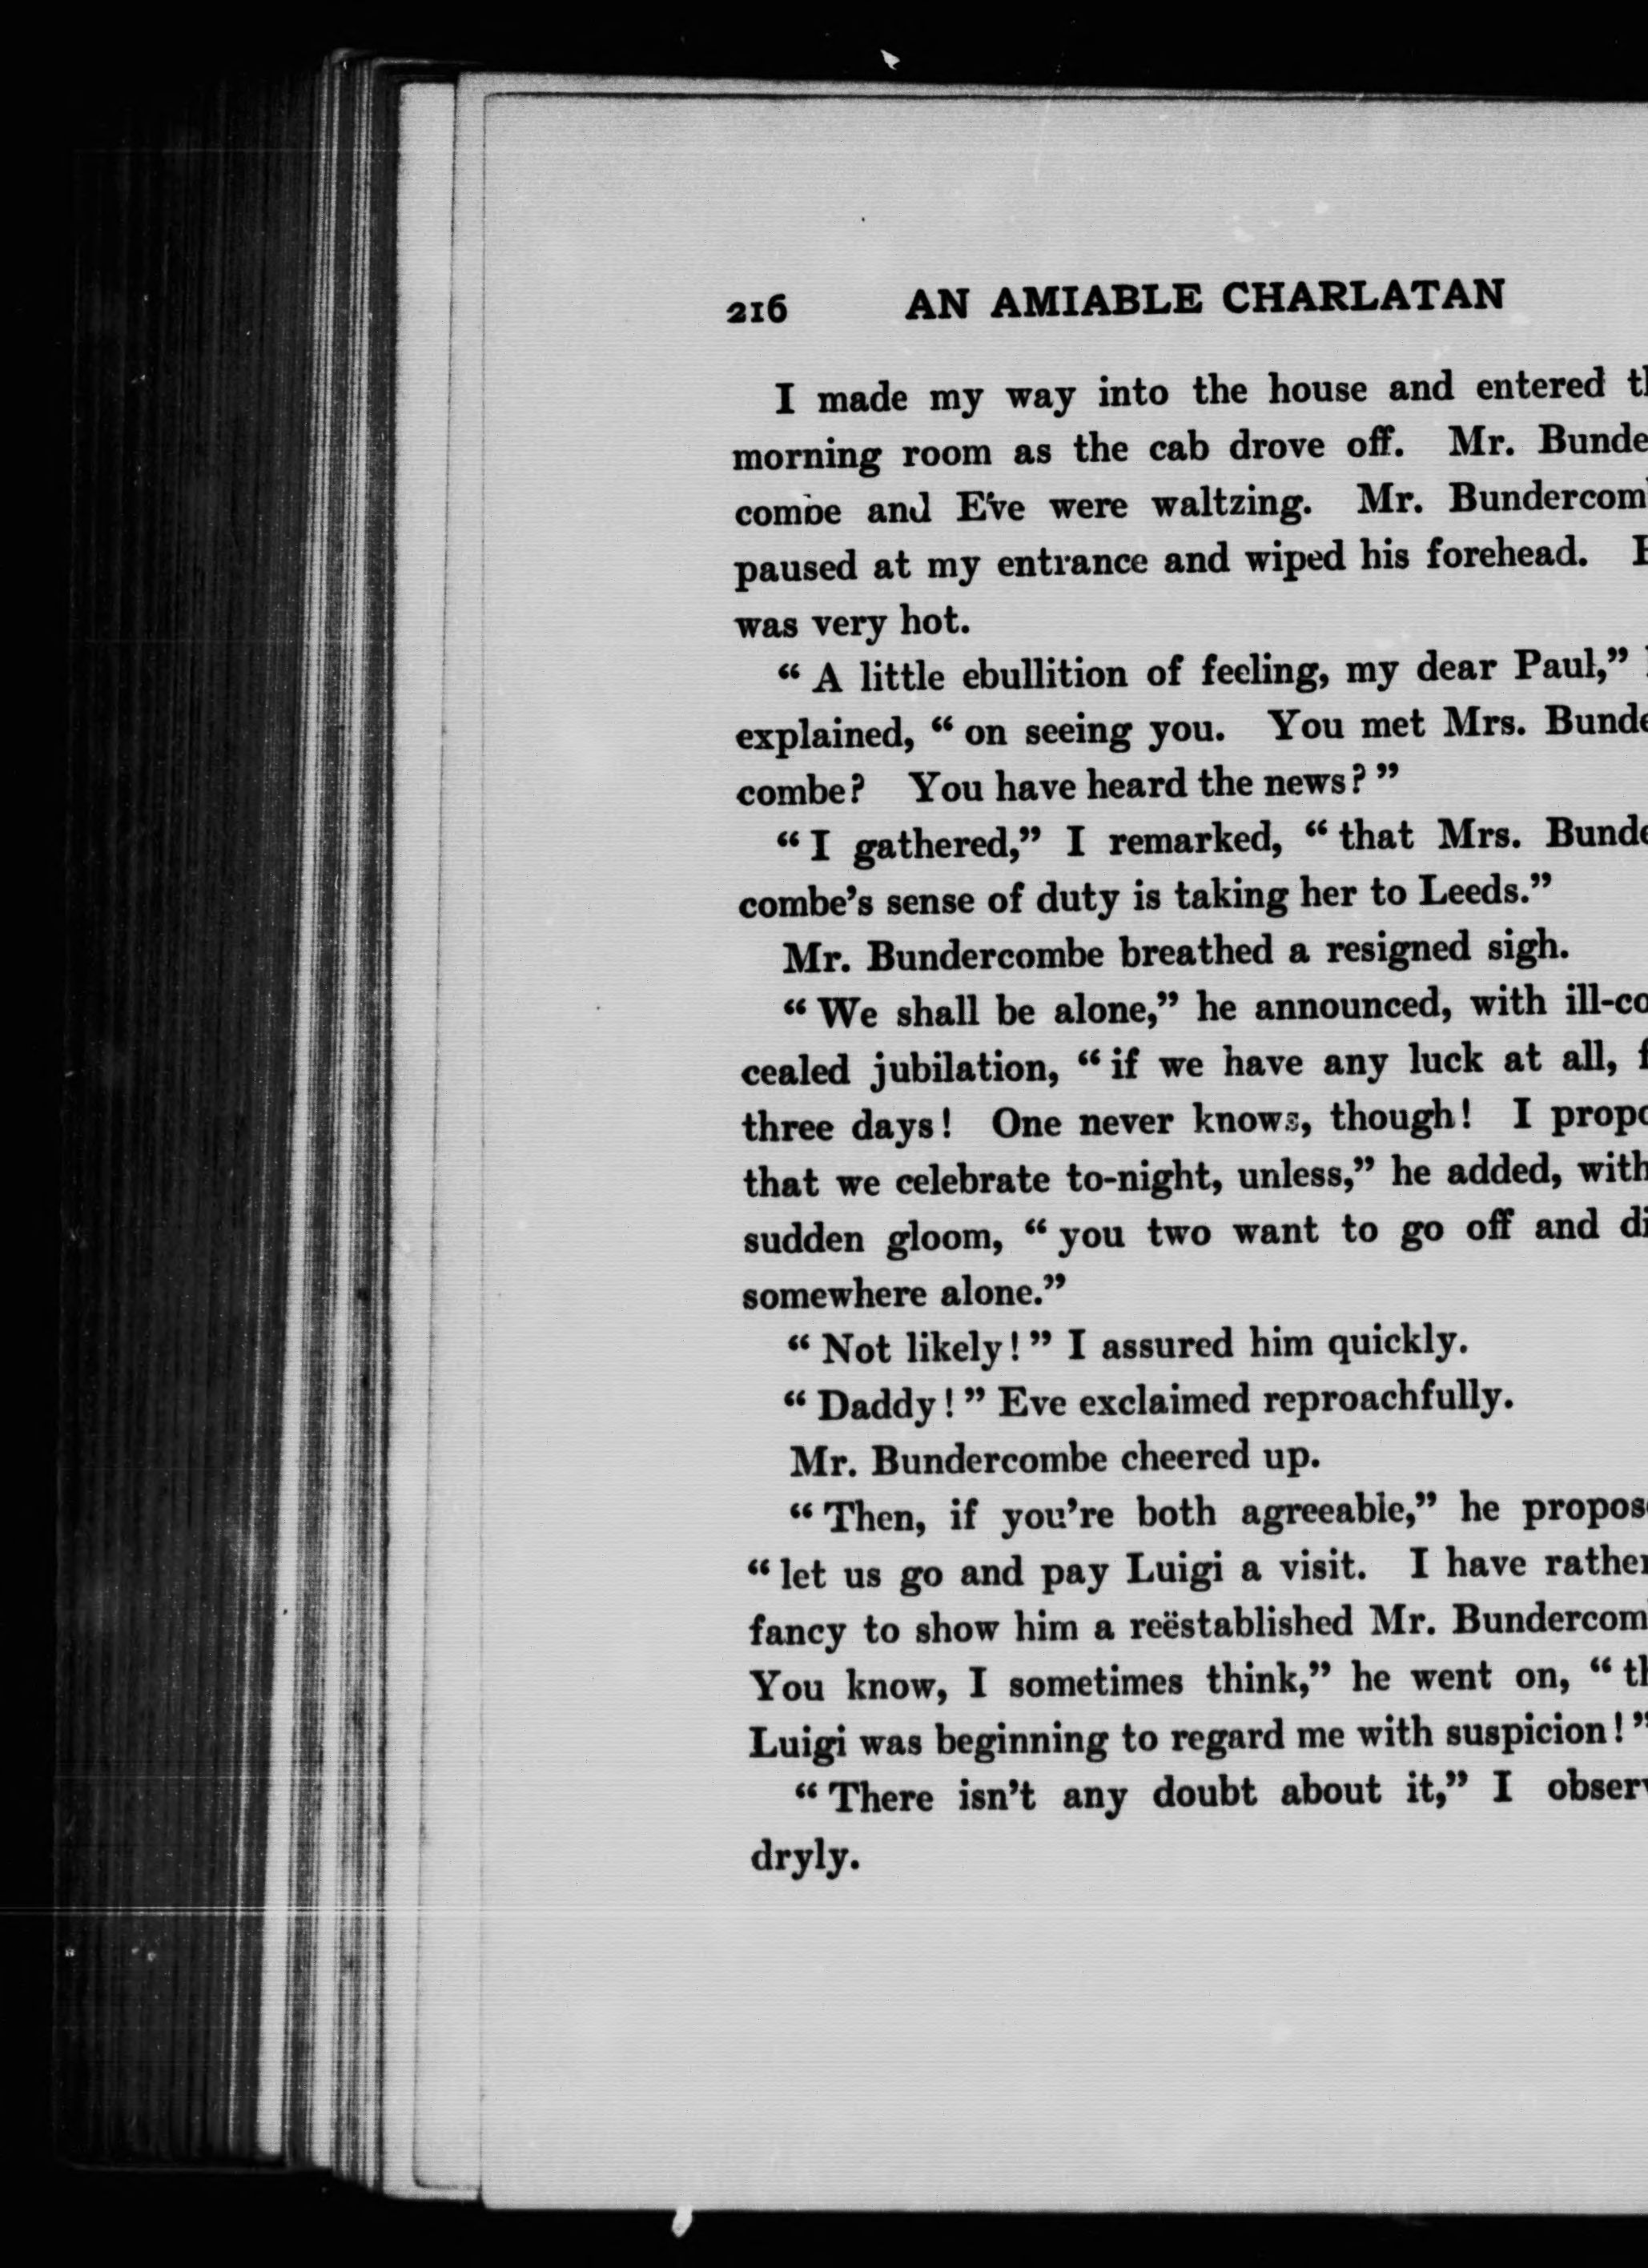 216 AN AMIABLE CHARLATAN
I made my way into the house and entered
morning room as the cab drove off. Mr. Bunde
combe and Eve were waltzing. Mr. Bundercom
paused at my entrance and wiped his forehead.
was very hot.
“ A little ebullition of feeling, my dear Paul,”
explained, “ on seeing you. You met Mrs. Bunde
combe? You have heard the news? ”
“ I gathered,” I remarked, “ that Mrs. Bunde
combe’s sense of duty is taking her to Leeds.”
Mr. Bundercombe breathed a resigned sigh.
“ We shall be alone,” he announced, with ill-co
cealed jubilation, “ if we have any luck at all,
three days! One never knows, though! I propo
that we celebrate to-night, unless,” he added, with
sudden gloom, “ you two want to go off and di
somewhere alone.”
“ Not likely! ” I assured him quickly.
“ Daddy! ” Eve exclaimed reproachfully.
Mr. Bundercombe cheered up.
“ Then, if you’re both agreeable,” he propos
“ let us go and pay Luigi a visit. I have rather
fancy to show him a reëstablished Mr. Bundercom
You know, I sometimes think,” he went on, “ th
Luigi was beginning to regard me with suspicion! ”
“ There isn’t any doubt about it,” I observ
dryly.